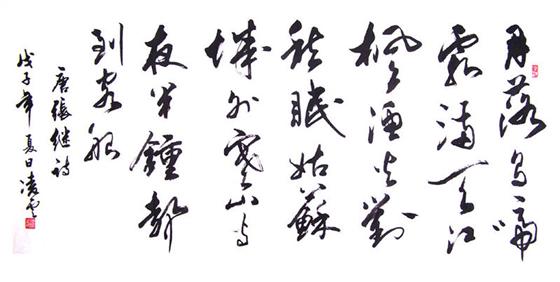 月落乌啼
霜满天江
枫渔火對
愁眠姑蘇
城外寒山寺
夜半鐘聲
到客船
唐張继诗
戊子年夏日凌云